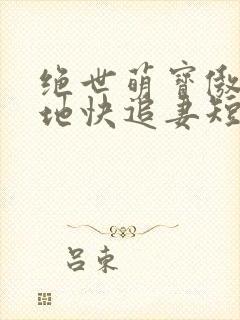 绝世萌宝傲
地快追妻短
吕束